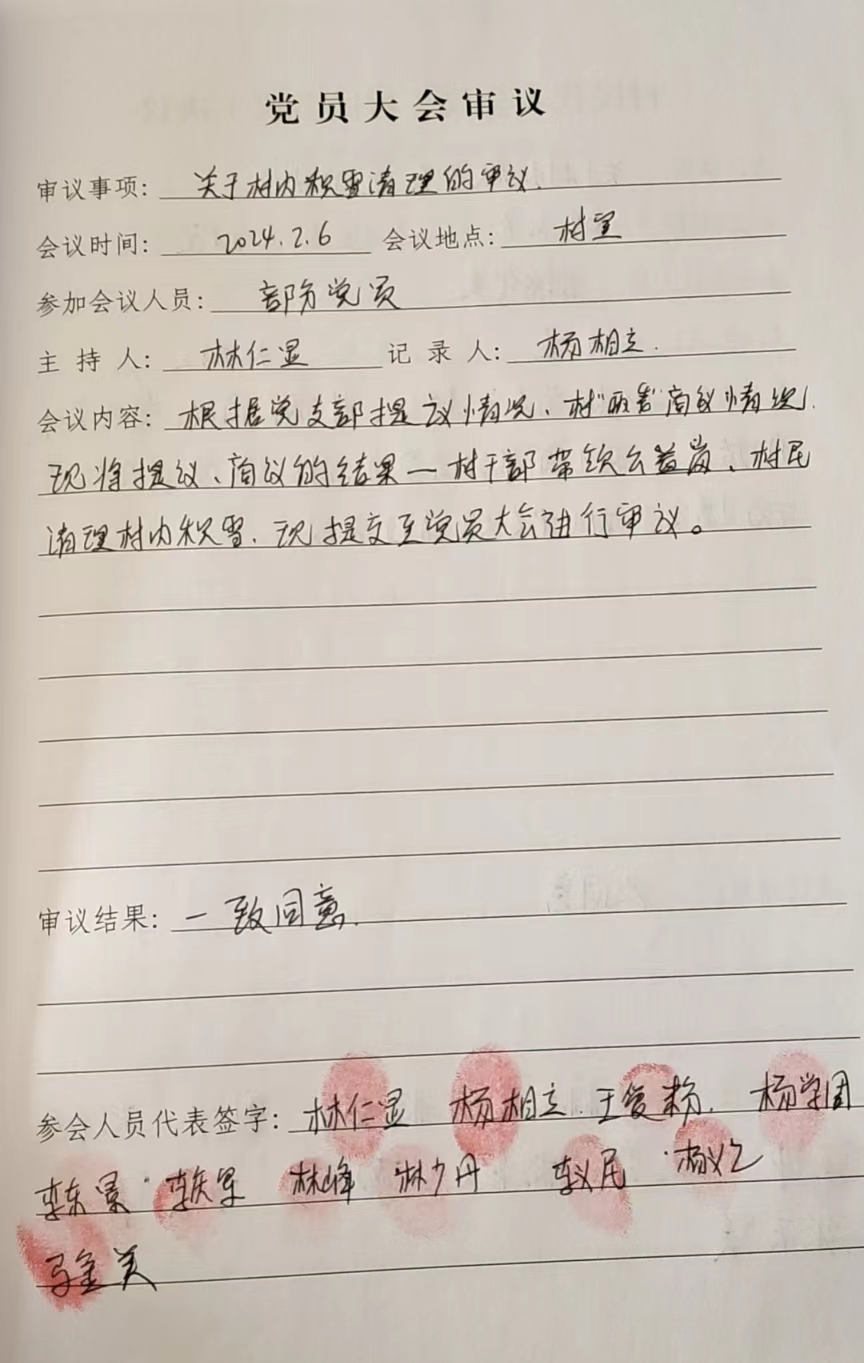 党员大会审议
审议事项：关于村内积雪清理的审议.
会议时间：2024.2.6 会议地点：村室
参加会议人员：部分党员
主持人：林仁显 记录人：杨相立.
会议内容：根据党支部提议情况、村"两委"商议情况.
现将提议、商议的结果—村干部带领公益岗、村民
清理村内积雪.现提交至党员大会进行审议。
审议结果：一致同意.
参会人员代表签字：林仁显 杨相立.王 杨学国
李东景 李庆军 林峰 林少丹 李义民
马金美